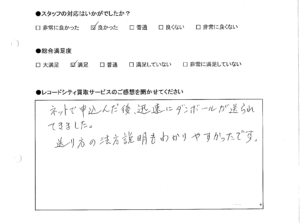 ●スタッフの対応はいかがでしたか？
□ 非常に良かった ☑ 良かった □ 普通 □ 良くない □ 非常に良くない
●総合満足度
□ 大満足 ☑ 満足 □ 普通 □ 満足していない □ 非常に満足していない
●レコードシティ買取サービスのご感想を聞かせてください
ネットで申込んだ後、迅速にダンボールが送られ
てきました。
送り方の法方説明もわかりやすかったです。